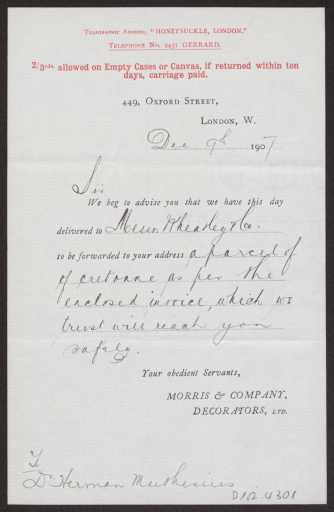 Telegraphic Address, "HONEYSUCKLE, LONDON."
Telephone No. 2431 GERRARD.
2/3rds. allowed on Empty Cases or Canvas, if returned within ten
days, carriage paid.
449, Oxford Street,
London, W.
Dec 9th 1907
Sir
We beg to advise you that we have this day
delivered to Messrs Wheatley & Co.
to be forwarded to your address a parcel of
of cretonne as per the
enclosed invoice, which we
trust will reach you
safely.
Your obedient Servants,
MORRIS & COMPANY,
DECORATORS, LTD.
Dr Herman Muthesius
D102-4301